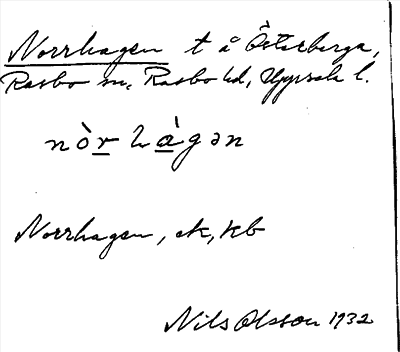 Norrhagen t å Österberga,
Rasbo sn, Rasbo hd, Uppsala l.
nòr hàgən
Norrhagen, ek, kb
Nils Olsson 1932